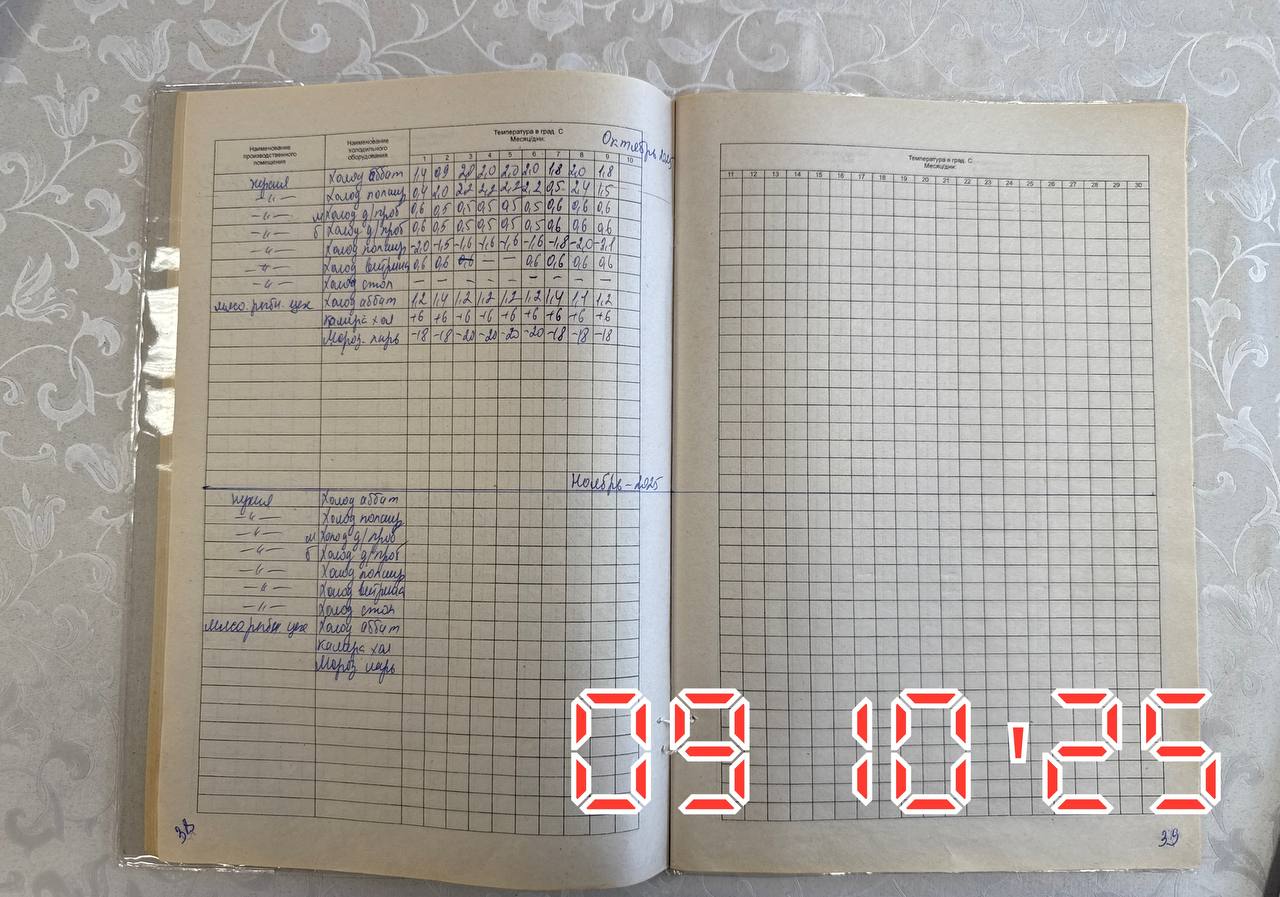 Наименование производственного помещения Наименование холодильного оборудования Температура в град. С Месяц/дни: Октябрь 2025
1 2 3 4 5 6 7 8 9 10
кухня Холод аббат 1,4 0,9 2,0 2,0 2,0 2,0 1,8 2,0 1,8
—"— Холод попаир 0,4 2,0 2,2 2,2 2,2 2,2 0,5 2,4 1,5
—"— м Холод д/проб 0,6 0,5 0,5 0,5 0,5 0,5 0,6 0,6 0,6
—"— б Холод д/проб 0,6 0,5 0,5 0,5 0,5 0,5 0,6 0,6 0,6
—"— Холод -2,0 -1,5 -1,6 -1,6 -1,6 -1,6 -1,8 -2,0 -2,1
—"— Холод витрина 0,6 0,6 — — 0,6 0,6 0,6 0,6
—"— Холод стол — — — — — — — — —
мясо.рыбн. цех Холод аббат 1,2 1,4 1,2 1,2 1,2 1,2 1,4 1,1 1,2
Камера хол +6 +6 +6 +6 +6 +6 +6 +6 +6
Мороз. ларь -18 -18 -20 -20 -20 -20 -18 -18 -18
Ноябрь - 2025
кухня Холод аббат
—"— Холод
—"— м Холод д/проб
—"— б Холод д/проб
—"— Холод
—"— Холод витрина
—"— Холод стол
мясорыбн цех Холод аббат
Камера хол
Мороз ларь
38
Температура в град. С
Месяц/дни:
11 12 13 14 15 16 17 18 19 20 21 22 23 24 25 26 27 28 29 30
39
09 10 '25